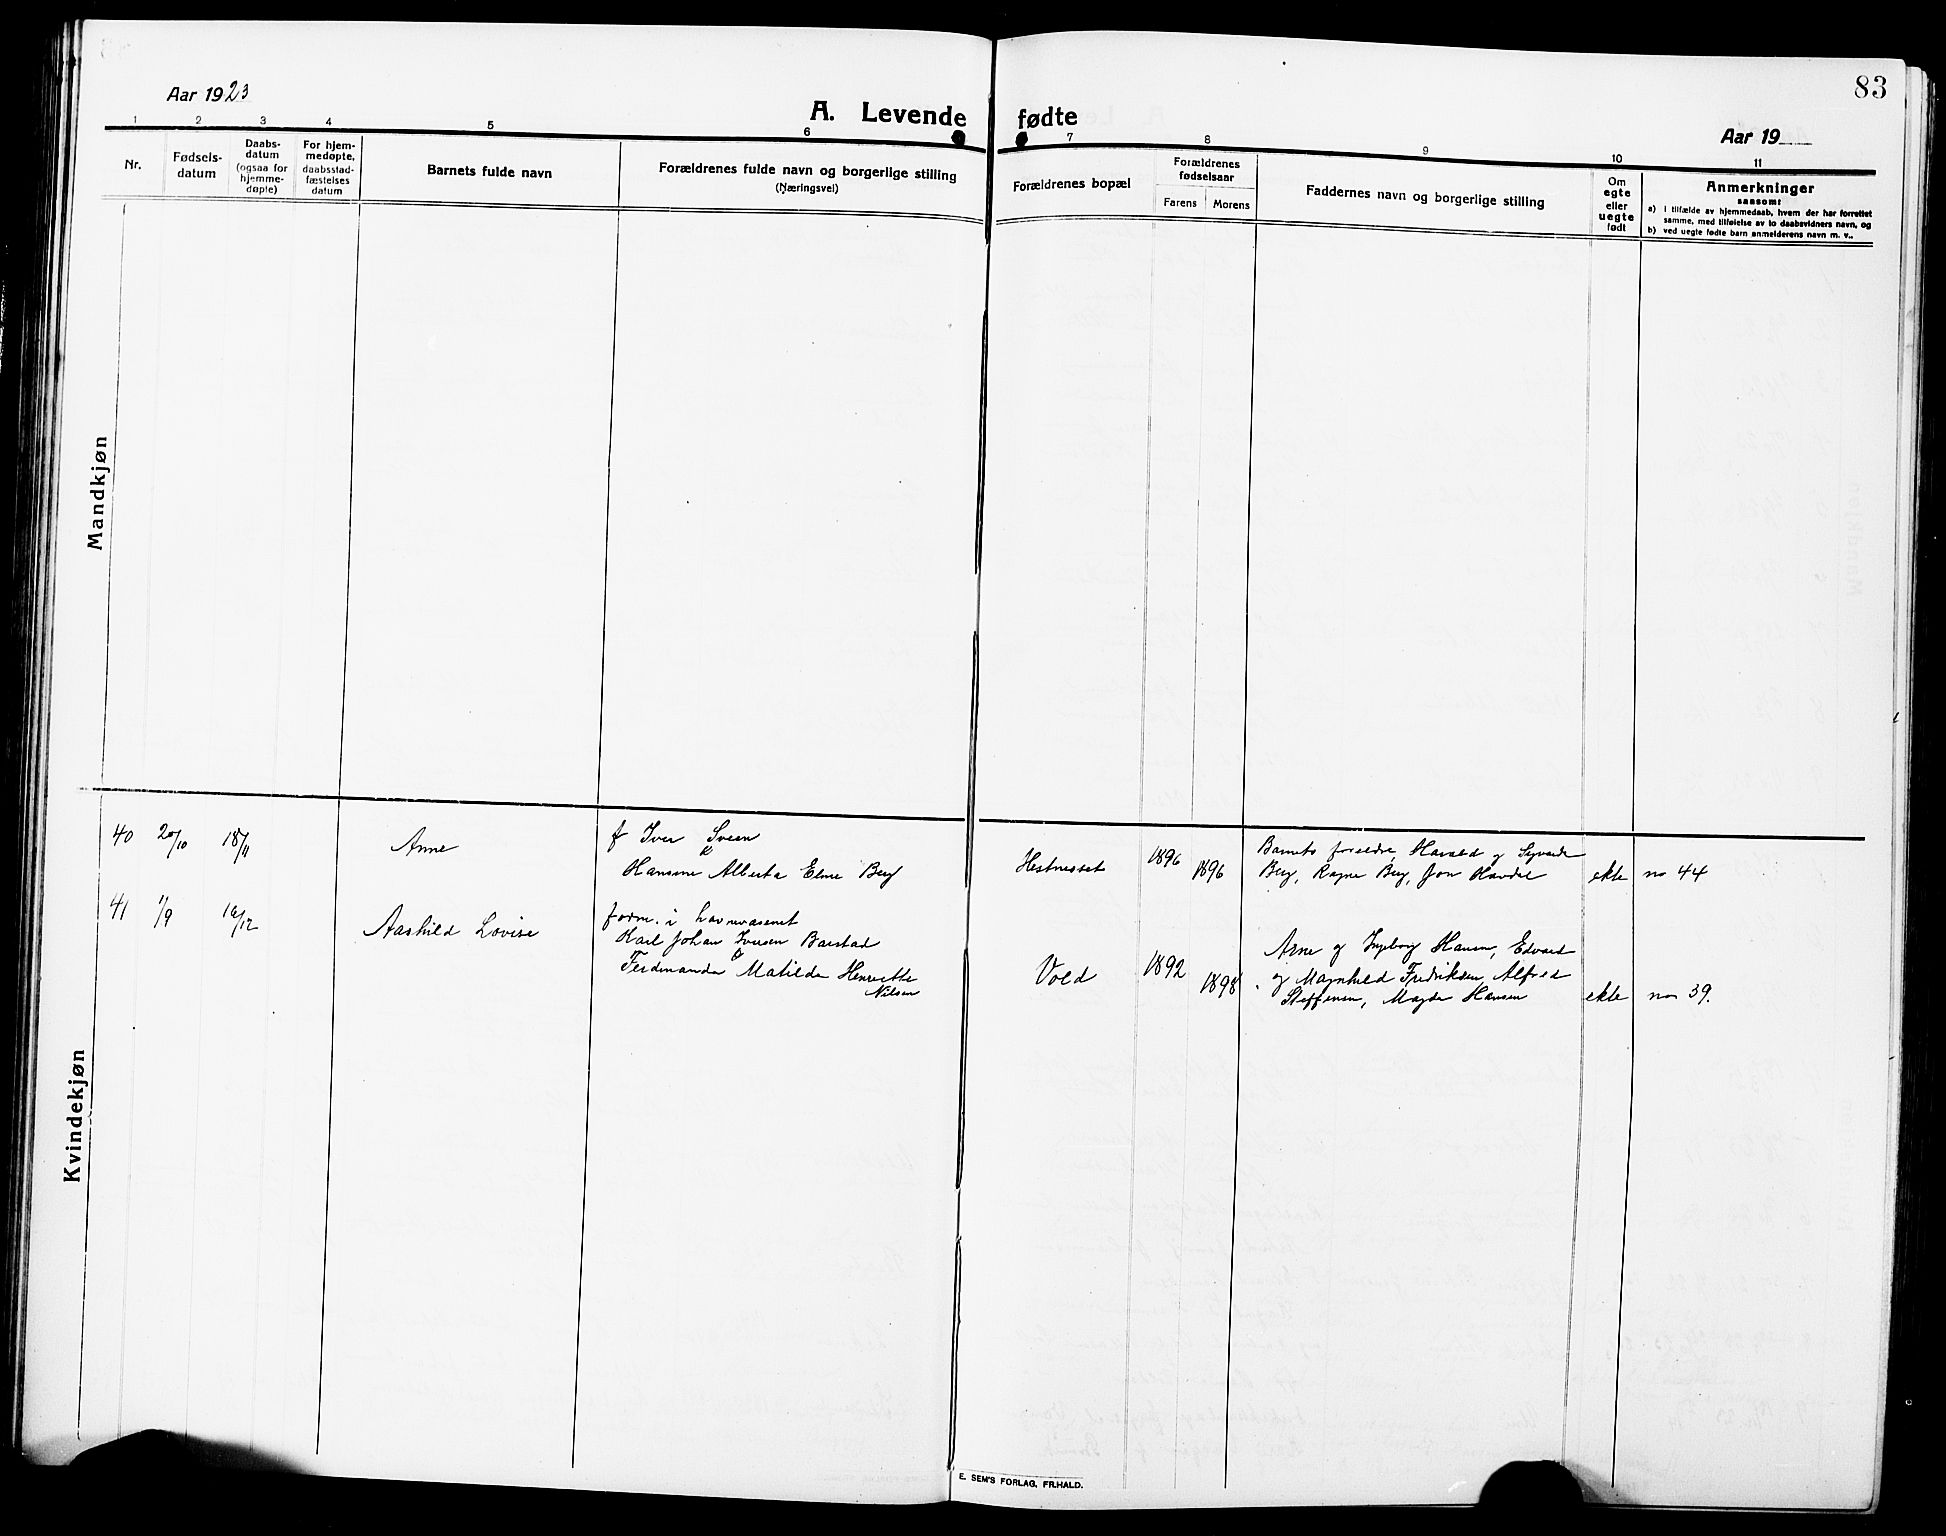 83
Aar 1923
A. Levende fødte
Aar 19
1 2 3 4 5 6 7 8 9 10 11
Nr.
Fødsels-
datum
Daabs-
datum
(ogsaa for
hjemme-
døpte)
For hjem-
medøpte,
daabsstad-
fæstelses
datum
Barnets fulde navn
Forældrenes fulde navn og borgerlige stilling
(Næringsvei)
Forældrenes bopæl
Forældrenes
fødselsaar
Farens Morens
Faddernes navn og borgerlige stilling
Om
egte
eller
uegte
født
Anmerkninger
sansomt
a) i tilfælde av hjemmedaab, hvem der har forrettet
samme, med tilføielse av to daabsvidners navn, og
b) ved uegte fødte barn anmelderens navn m. v..
Mandkjøn
Kvindekjøn
40 20/10 18/11 Anne
f Iver Sveen
Hansine Alberta Eline Berg
Hestnesset 1896 1896
Barnets foreldre, Harald og
Berg, Ragna Berg, Jon
ekte no 44
41 1/9 16/12 Aashild Lovise
form. i havnevæsenet
Karl Johan Iversen Barstad
og
Ferdinanda Matilde Henriette
Nilsen
Vold 1892 1898
Arne og Ingeborg Hansen, Edvard
og Magnhild Fredriksen, Alfred
Steffensen, Magda Hansen
ekte no 39.
E. SEM'S FORLAG, FR.HALD.